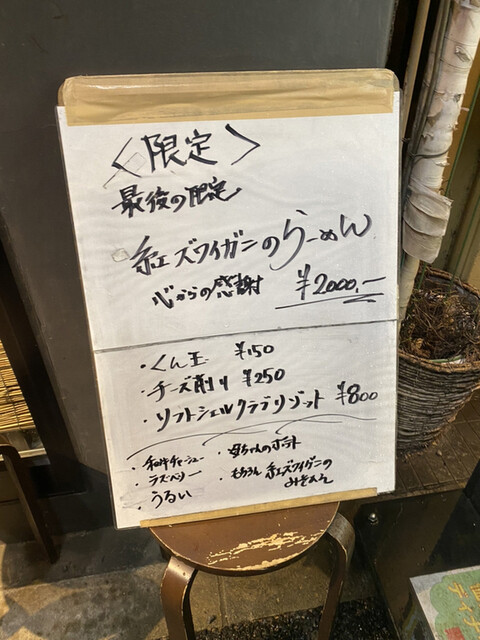 〈限定〉
最後の限定
紅ズワイガニのらーめん
心からの感謝 ¥2000,-
・くん玉 ¥150
・チーズ削り ¥250
・ソフトシェルクラブリゾット ¥800
・和牛チャーシュー
・ラズベリー
・うるい
・母ちゃんのポテト
・もちろん紅ズワイガニの